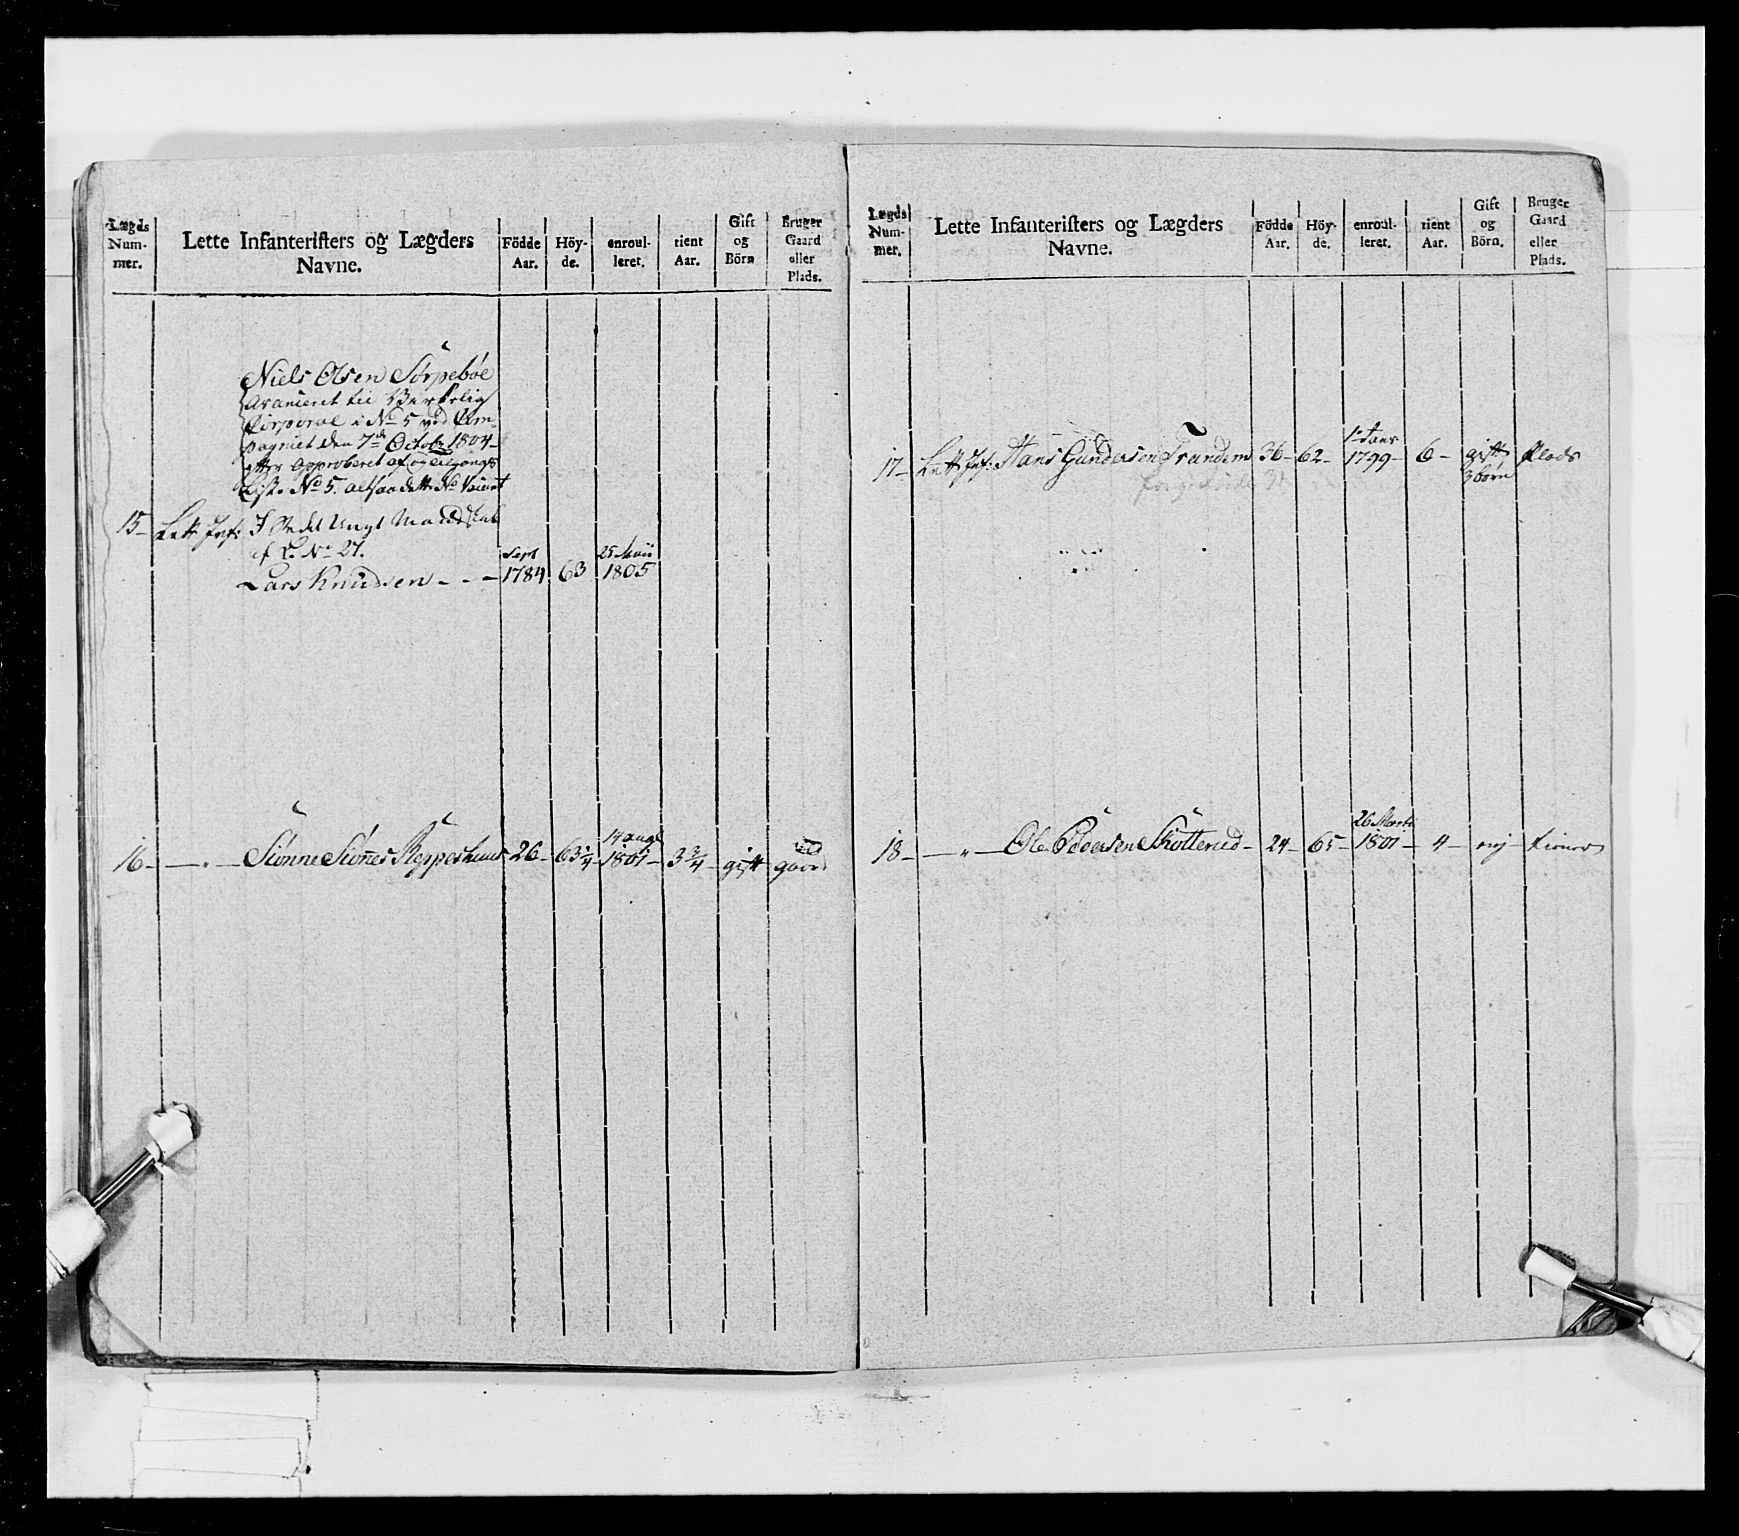 Lægds Num- mer.
Lette Infanterister og Lægders Navne.
Födde Aar.
Höy- de.
enroul- leret.
tient Aar.
Gift og Börn
Bruger Gaard eller Plads.
Niels Olsen Sörpebøe
avanceret til Virkelig
Corporal i No 5 ved Com-
pagniet den 7de Octobr 1804
efter approberet af og tilgangs
Liste No 5. altsaa dette No Vacant
15 Lett Inf: I Stedet Ungt Mandskab
af L. No 27.
Lars Knudsen - - - Sept 1784 63 25 Maii 1805
16 — " — Siønne Siønnes 26 63 1/4 14 Aug 1801 3 3/4 gift gaard
Lægds Num- mer.
Lette Infanterister og Lægders Navne.
Födde Aar.
Höy- de.
enroul- leret.
tient Aar.
Gift og Börn.
Bruger Gaard eller Plads.
17 Lett Inf: Hans Gundersen Trandem 36 62 1 Janr 1799 6 gift 3 börn Plads
18 — " — Ole Pedersen Skotterud 24 65 26 Martz 1801 4 nej tiener